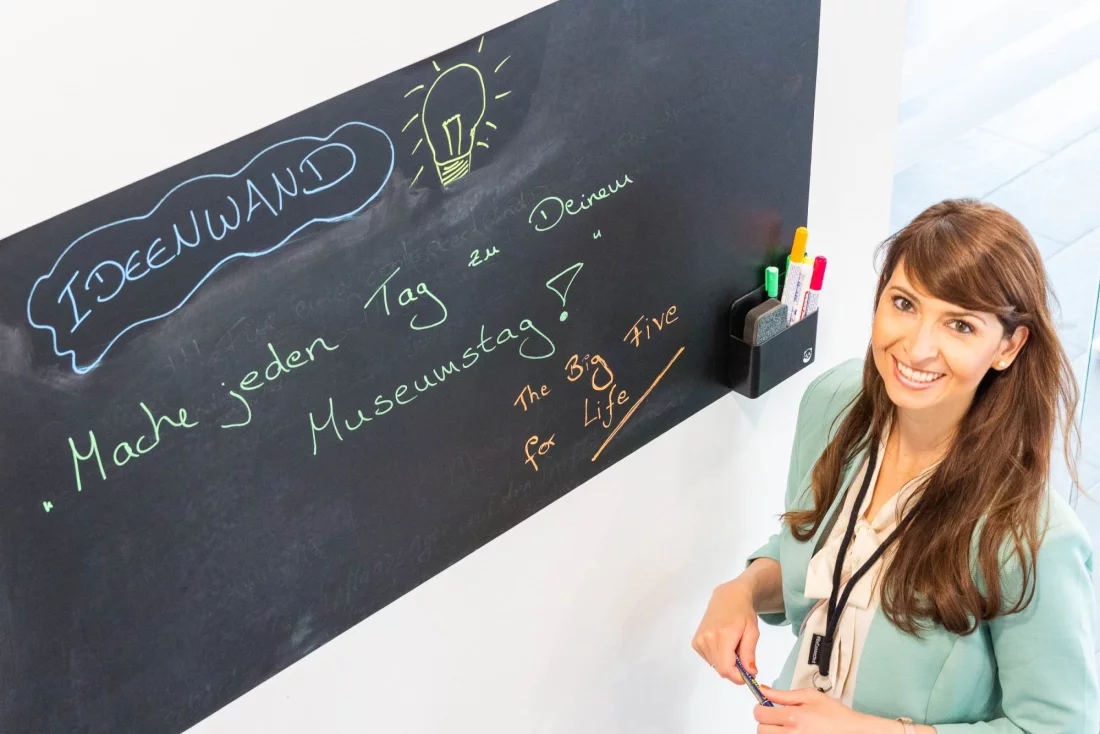 IDEENWAND
"Mache jeden Tag zu Deinem
Museumstag!"
The Big Five
for Life